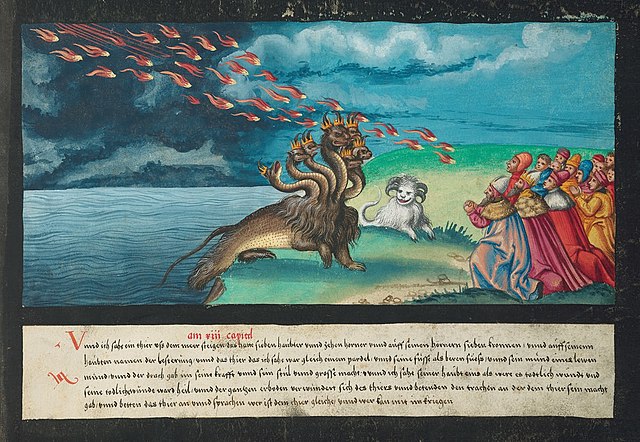 am xiii capitel
Vnnd ich sahe ein thier vß dem meer steigen das hatte sieben haubter vnnd zehen horner vnnd auff seinen hornern sieben kronnen / vnnd auff seinenn
haubten namen der lesterung / vnnd das thier das ich sahe war gleich einem pardel / vnnd seine füss als beren füess / vnd sein mund eines lewen
mund / vnnd der drach gab im seine krafft vnnd sein stul vnnd grosse macht / vnnd ich sahe seiner haubt eins als were es tödtlich wund vnd
seine todlich wunde ward heil / vnnd der gantz erdboden verwundert sich des thiers vnnd betenden den trachen an der dem thier sein macht
gab / vnnd beten das thier an vnnd sprachen wer ist dem thier gleiche / vnnd wer kan mit im kriegen